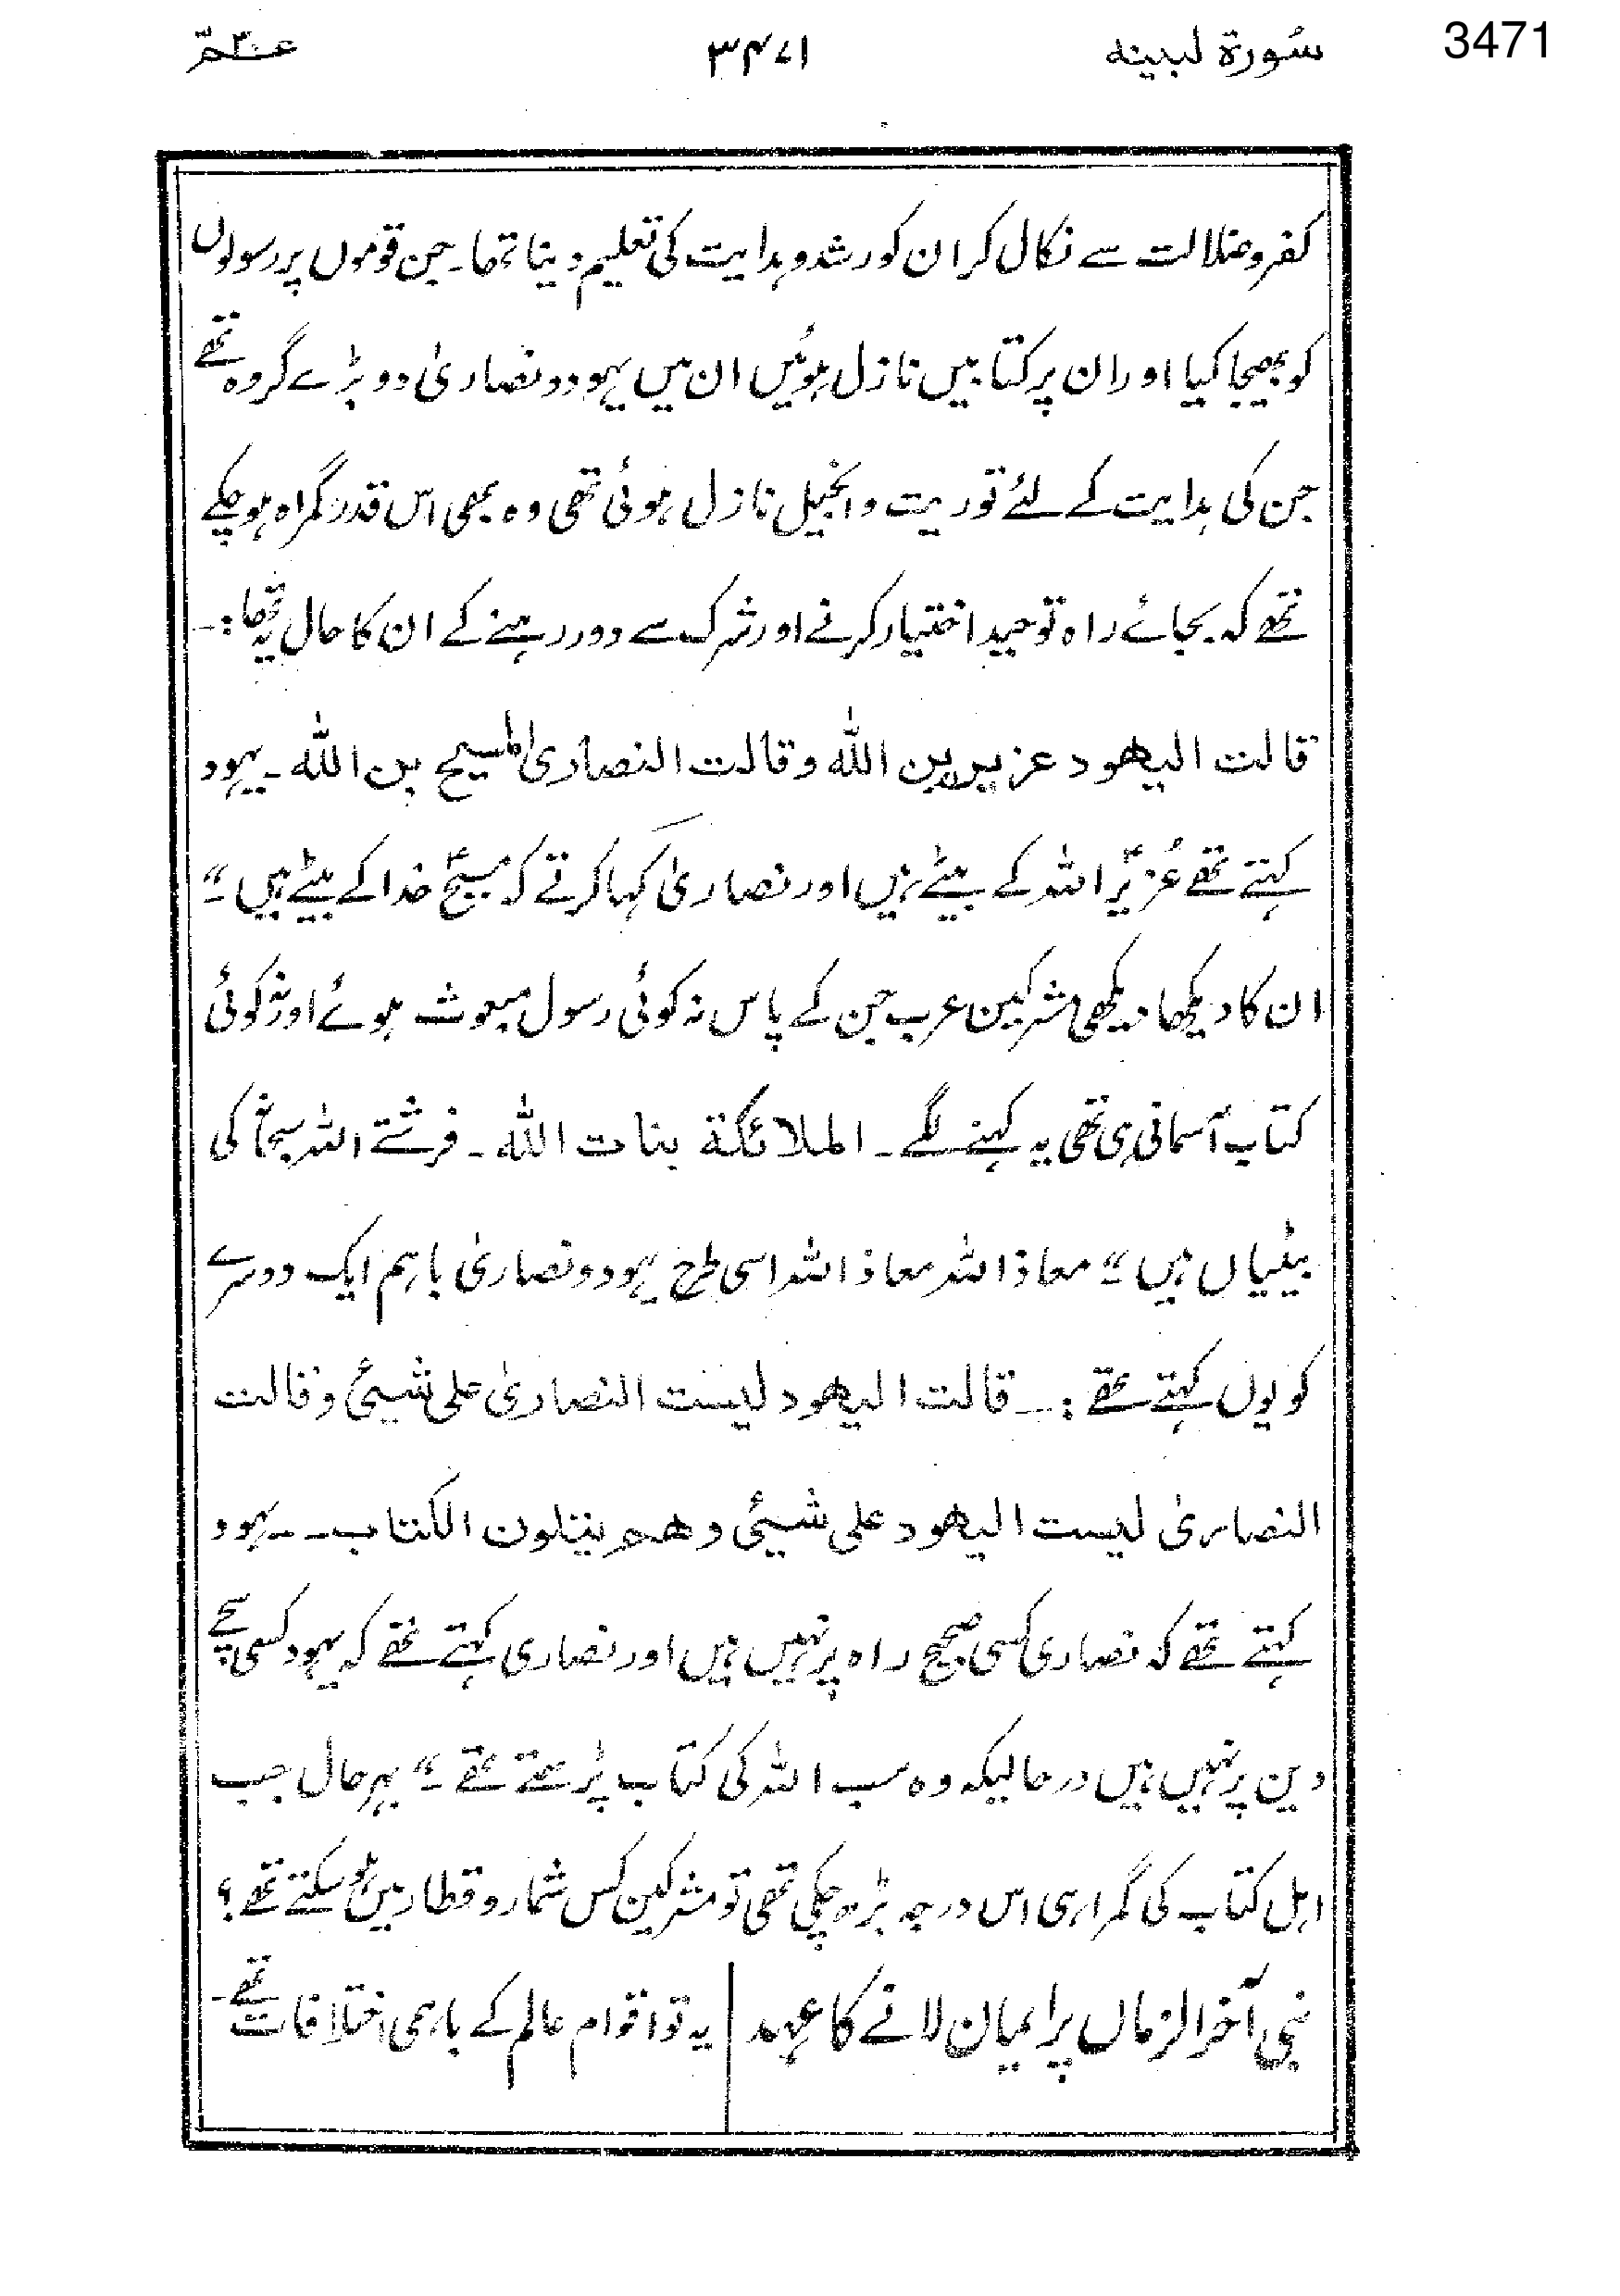 3471
سُورۃ لبینه ۳۴۷۱ عمّ ۳۰
کفروضلالت سے نکال کر ان کو رشد و ہدایت کی تعلیم دینا تھا۔ جن قوموں پر رسولوں
کو بھیجا کیا اور ان پر کتابیں نازل ہوئیں ان میں یہود و نصاریٰ دو بڑے گروہ تھے
جن کی ہدایت کے لئے توریت و انجیل نازل ہوئی تھی وہ بھی اس قدر گمراہ ہو چکے
تھے کہ بجائے راہ توحید اختیار کرنے اور شرک سے دور رہنے کے ان کا حال یہ تھا:۔
قالت الیھود عزیربن اللہ وقالت النصاریٰ المسیح بن اللہ۔ یہود
کہتے تھے عُزیرؑ اللہ کے بیٹے ہیں اور نصاریٰ کہا کرتے کہ مسیحؑ خدا کے بیٹے ہیں۔"
ان کا دیکھا دیکھی مشرکین عرب جن کے پاس نہ کوئی رسول مبعوث ہوئے اور نہ کوئی
کتاب آسمانی ہی تھی یہ کہنے لگے۔ الملائکة بنات اللہ۔ فرشتے اللہ سبحانہٗ کی
بیٹیاں ہیں۔" معاذ اللہ معاذ اللہ اسی طرح یہود و نصاریٰ باہم ایک دوسرے
کو یوں کہتے تھے :۔ قالت الیھود لیست النصاریٰ علی شیئ وقالت
النصاریٰ لیست الیھود علی شیئ وھم یتلون الکتاب۔۔ یہود
کہتے تھے کہ نصاری کسی صحیح راہ پر نہیں ہیں اور نصاری کہتے تھے کہ یہود کسی سچے
دین پر نہیں ہیں درحالیکہ وہ سب اللہ کی کتاب پڑھتے تھے۔" بہرحال جب
اہل کتاب کی گمراہی اس درجہ بڑھ چکی تھی تو مشرکین کس شمار و قطار میں ہو سکتے تھے؟
نبی آخر الزماں پر ایمان لانے کا عہد | یہ تو اقوام عالم کے باہمی اختلافات تھے۔